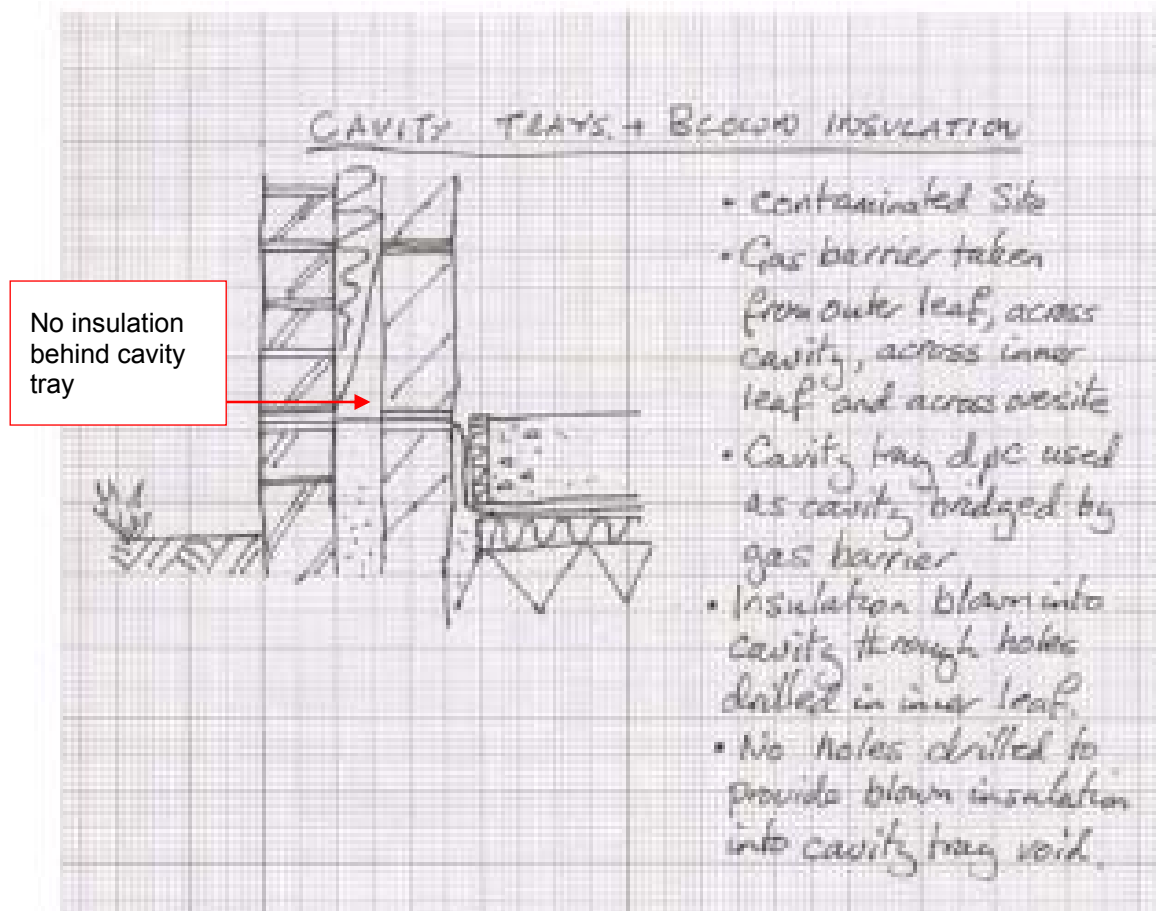 CAVITY TRAYS + BLOWN INSULATION
• Contaminated Site
• Gas barrier taken
from outer leaf, across
cavity, across inner
leaf and across oversite
• Cavity tray dpc used
as cavity bridged by
gas barrier
• Insulation blown into
cavity through holes
drilled in inner leaf.
• No holes drilled to
provide blown insulation
into cavity tray void.
No insulation
behind cavity
tray